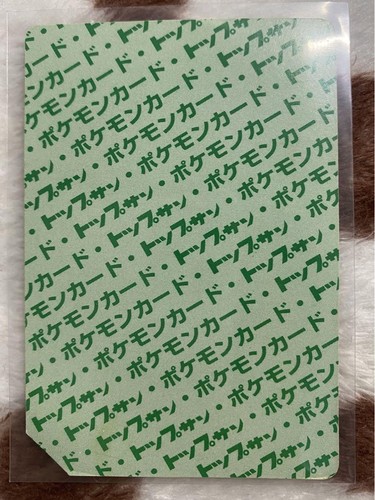 カード・トップサン
トップサン・ポケモンカード
ポケモンカード・トップサン
トップサン・ポケモンカード
ポケモンカード・トップサン
トップサン・ポケモンカード
ポケモンカード・トップサン
トップサン・ポケモンカード
モンカード・トップサン・ポケ
トップサン・ポケモンカード
モンカード・トップサン・ポケ
トップサン・ポケモンカード
ポケモンカード・トップサン
トップサン・ポケモンカード
カード・トップサン